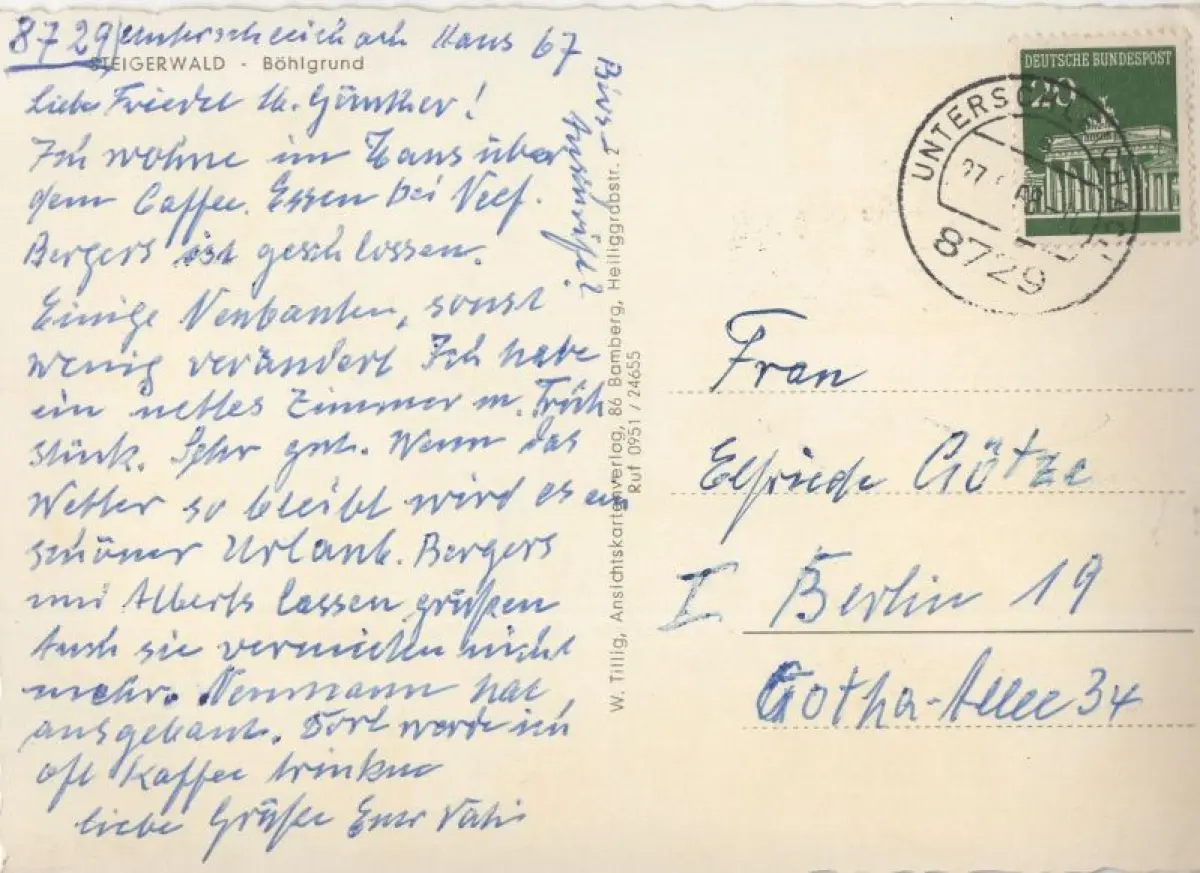 8729 Unterschleichach Haus 67
STEIGERWALD - Böhlgrund
Liebe Friedel u. Günther!
Ich wohne im Haus über
dem Caffee. Essen bei
Bergers ist geschlossen.
Einige Neubauten, sonst
wenig verändert Ich habe
ein nettes Zimmer m. Früh
stück. Sehr gut. Wenn das
Wetter so bleibt wird es ein
schöner Urlaub. Bergers
und Alberts lassen grüßen
Auch sie vermieten nicht
mehr. Neumann hat
ausgebaut. Dort werde ich
oft Kaffee trinken
liebe Grüße Euer Vati
W. Tillig, Ansichtskartenverlag, 86 Bamberg, Heiliggrabstr. 2
Ruf 0951 / 24655
DEUTSCHE BUNDESPOST
20
8729
Frau
Elfriede Götze
I Berlin 19
Gotha-Allee 34